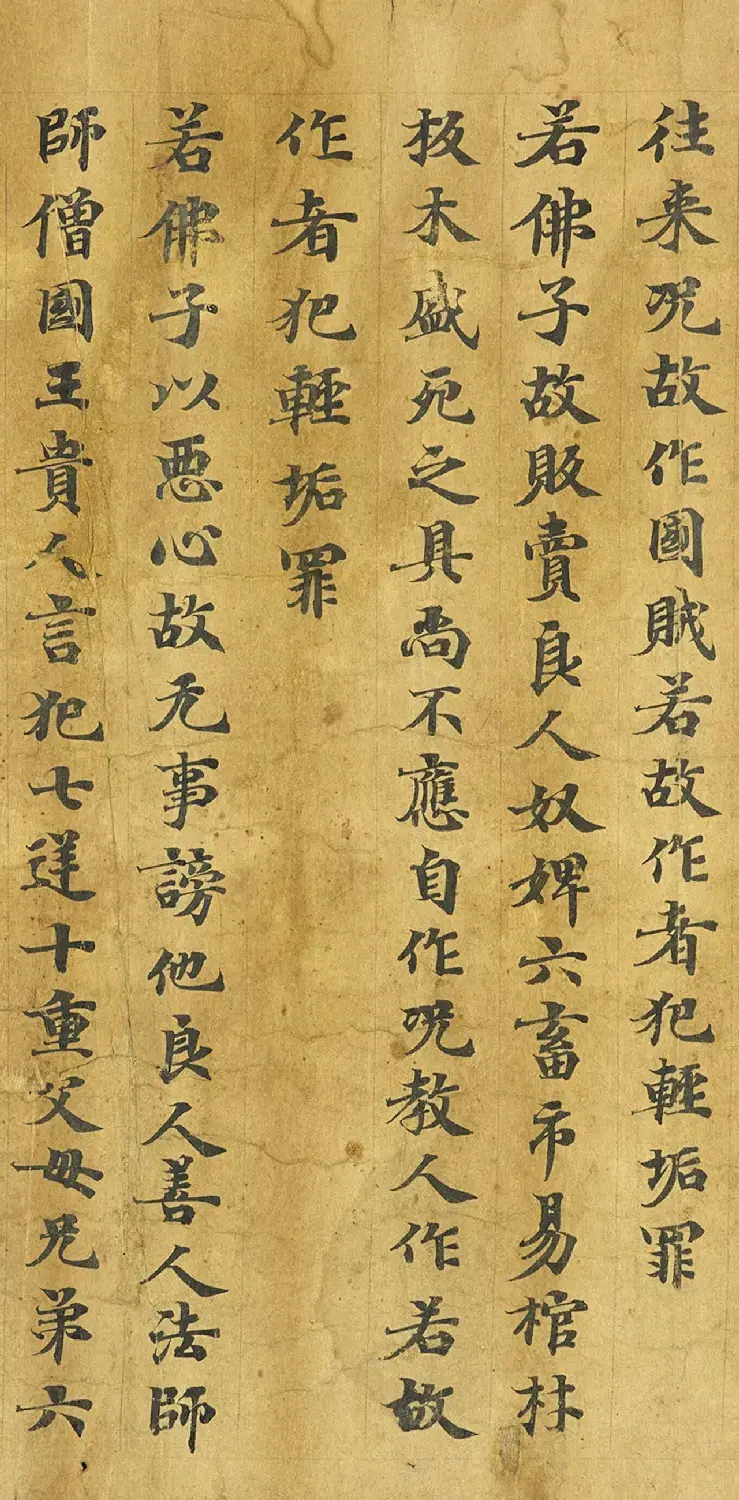 往来呪故作國賊若故作者犯輕垢罪
若佛子故販賣良人奴婢六畜市易棺材
板木盛死之具尚不應自作呪教人作若故
作者犯輕垢罪
若佛子以悪心故无事謗他良人善人法師
師僧國王貴人言犯七逆十重父母兄弟六